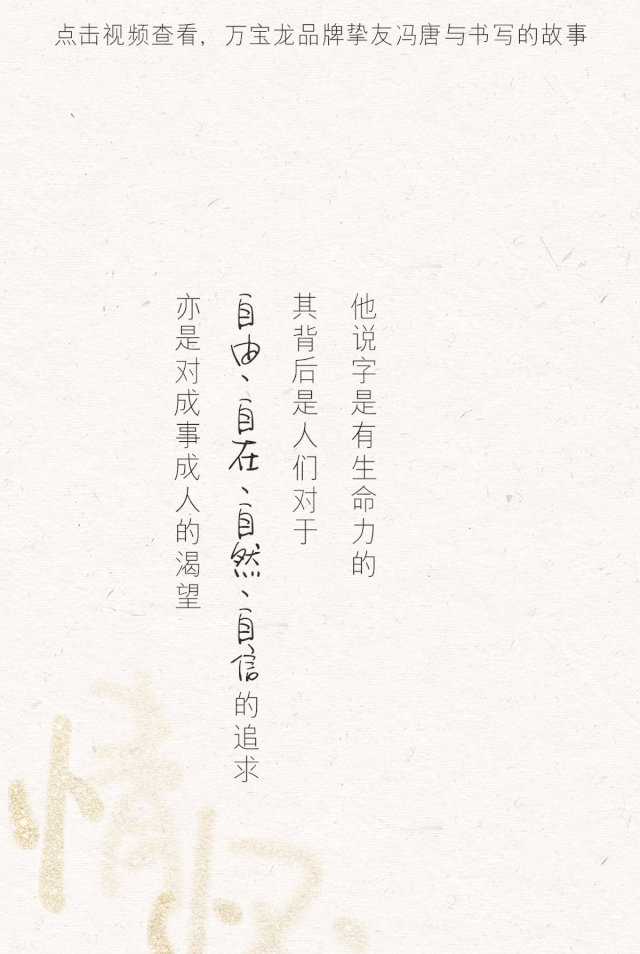 点击视频查看，万宝龙品牌挚友冯唐与书写的故事
他说字是有生命力的
其背后是人们对于
自由、自在、自然、自信的追求
亦是对成事成人的渴望
情怀